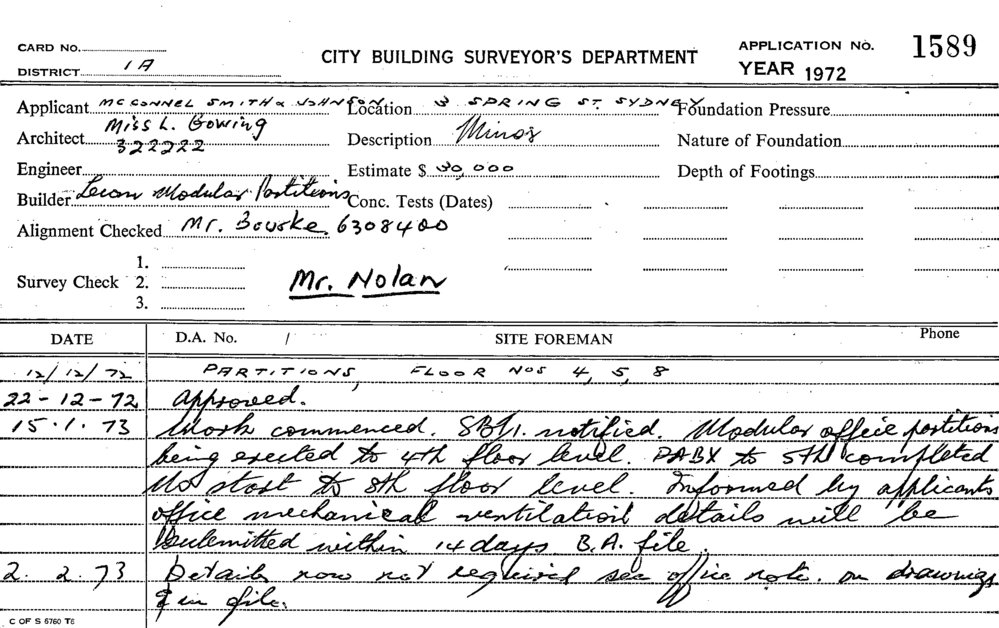 CARD NO.
CITY BUILDING SURVEYOR'S DEPARTMENT
APPLICATION NO. 1589
DISTRICT 1A
YEAR 1972
Applicant MCCONNEL SMITH & JOHNSON Location 3 SPRING ST. SYDNEY Foundation Pressure
Architect Miss L. Gowing 322222 Description Minor Nature of Foundation
Engineer Estimate $ 30,000 Depth of Footings
Builder Modular Partitions Conc. Tests (Dates)
Alignment Checked Mr. Bourke 6308400
Survey Check 1. 2. 3. Mr. Nolan
DATE D.A. No. / SITE FOREMAN Phone
12/12/72 PARTITIONS, FLOOR NOS 4, 5, 8
22-12-72 Approved.
15.1.73 Work commenced. notified. Modular office partitions
being erected to 4th floor level. PABX to 5th completed
No start to 8th floor level. Informed by applicants
office mechanical ventilation details will be
submitted within 14 days B.A. file.
2.2.73 Details now not required see office note. on drawings
& in file.
C OF S 6760 T6